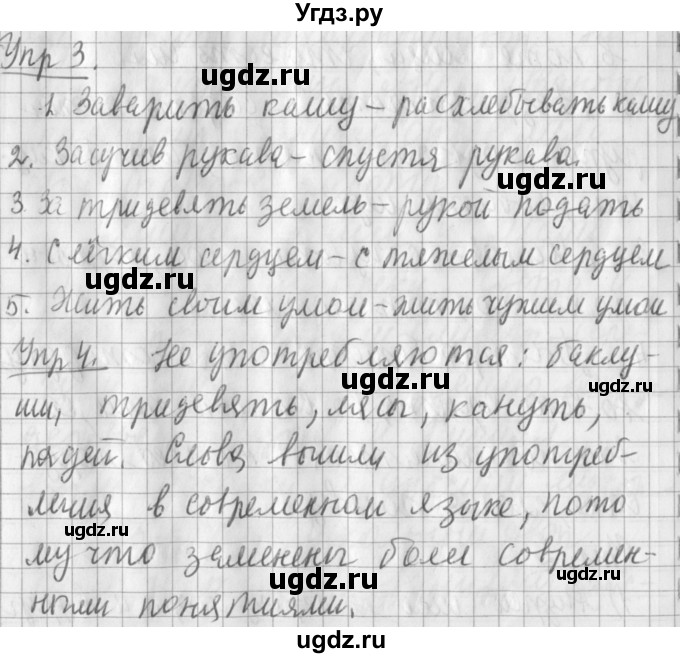 Угдз.ру
Упр 3.
ugdz.ru ugdz.ru
1. Заварить кашу – расхлебывать кашу
2. Засучив рукава – спустя рукава.
ugdz.ru
3. За тридевять земель – рукой подать
4. С лёгким сердцем – с тяжелым сердцем
ugdz.ru
5. Жить своим умом – жить чужим умом
ugdz.ru
Упр 4. Не употребляются: баклу-
ugdz.ru
ши, тридевять, лясы, кануть,
пядей. Слова вышли из употреб-
ления в современном языке, пото
ugdz.ru
му что заменены более современ-
ugdz.ru ugdz.ru
ными понятиями.
ugdz.ru